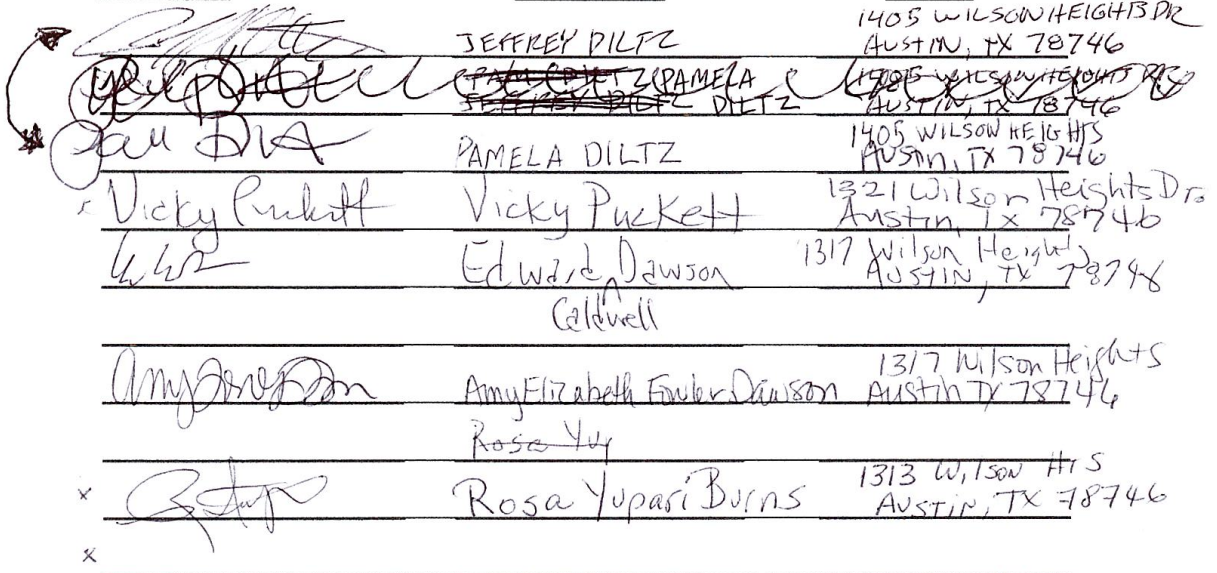 JEFFREY DILTZ 1405 WILSON HEIGHTS DR
AUSTIN, TX 78746
PAMELA
DILTZ AUSTIN, TX 78746
Pam Diltz PAMELA DILTZ 1405 WILSON HEIGHTS
AUSTIN, TX 78746
x Vicky Puckett Vicky Puckett 1321 Wilson Heights Dr.
Austin, Tx 78746
Edward Dawson 1317 Wilson Heights
AUSTIN, TX 78746
Caldwell
Amy Elizabeth Fowler Dawson 1317 Wilson Heights
Austin TX 78746
Rosa Yup
x Rosa Yupari Burns 1313 Wilson HTS
AUSTIN, TX 78746
x